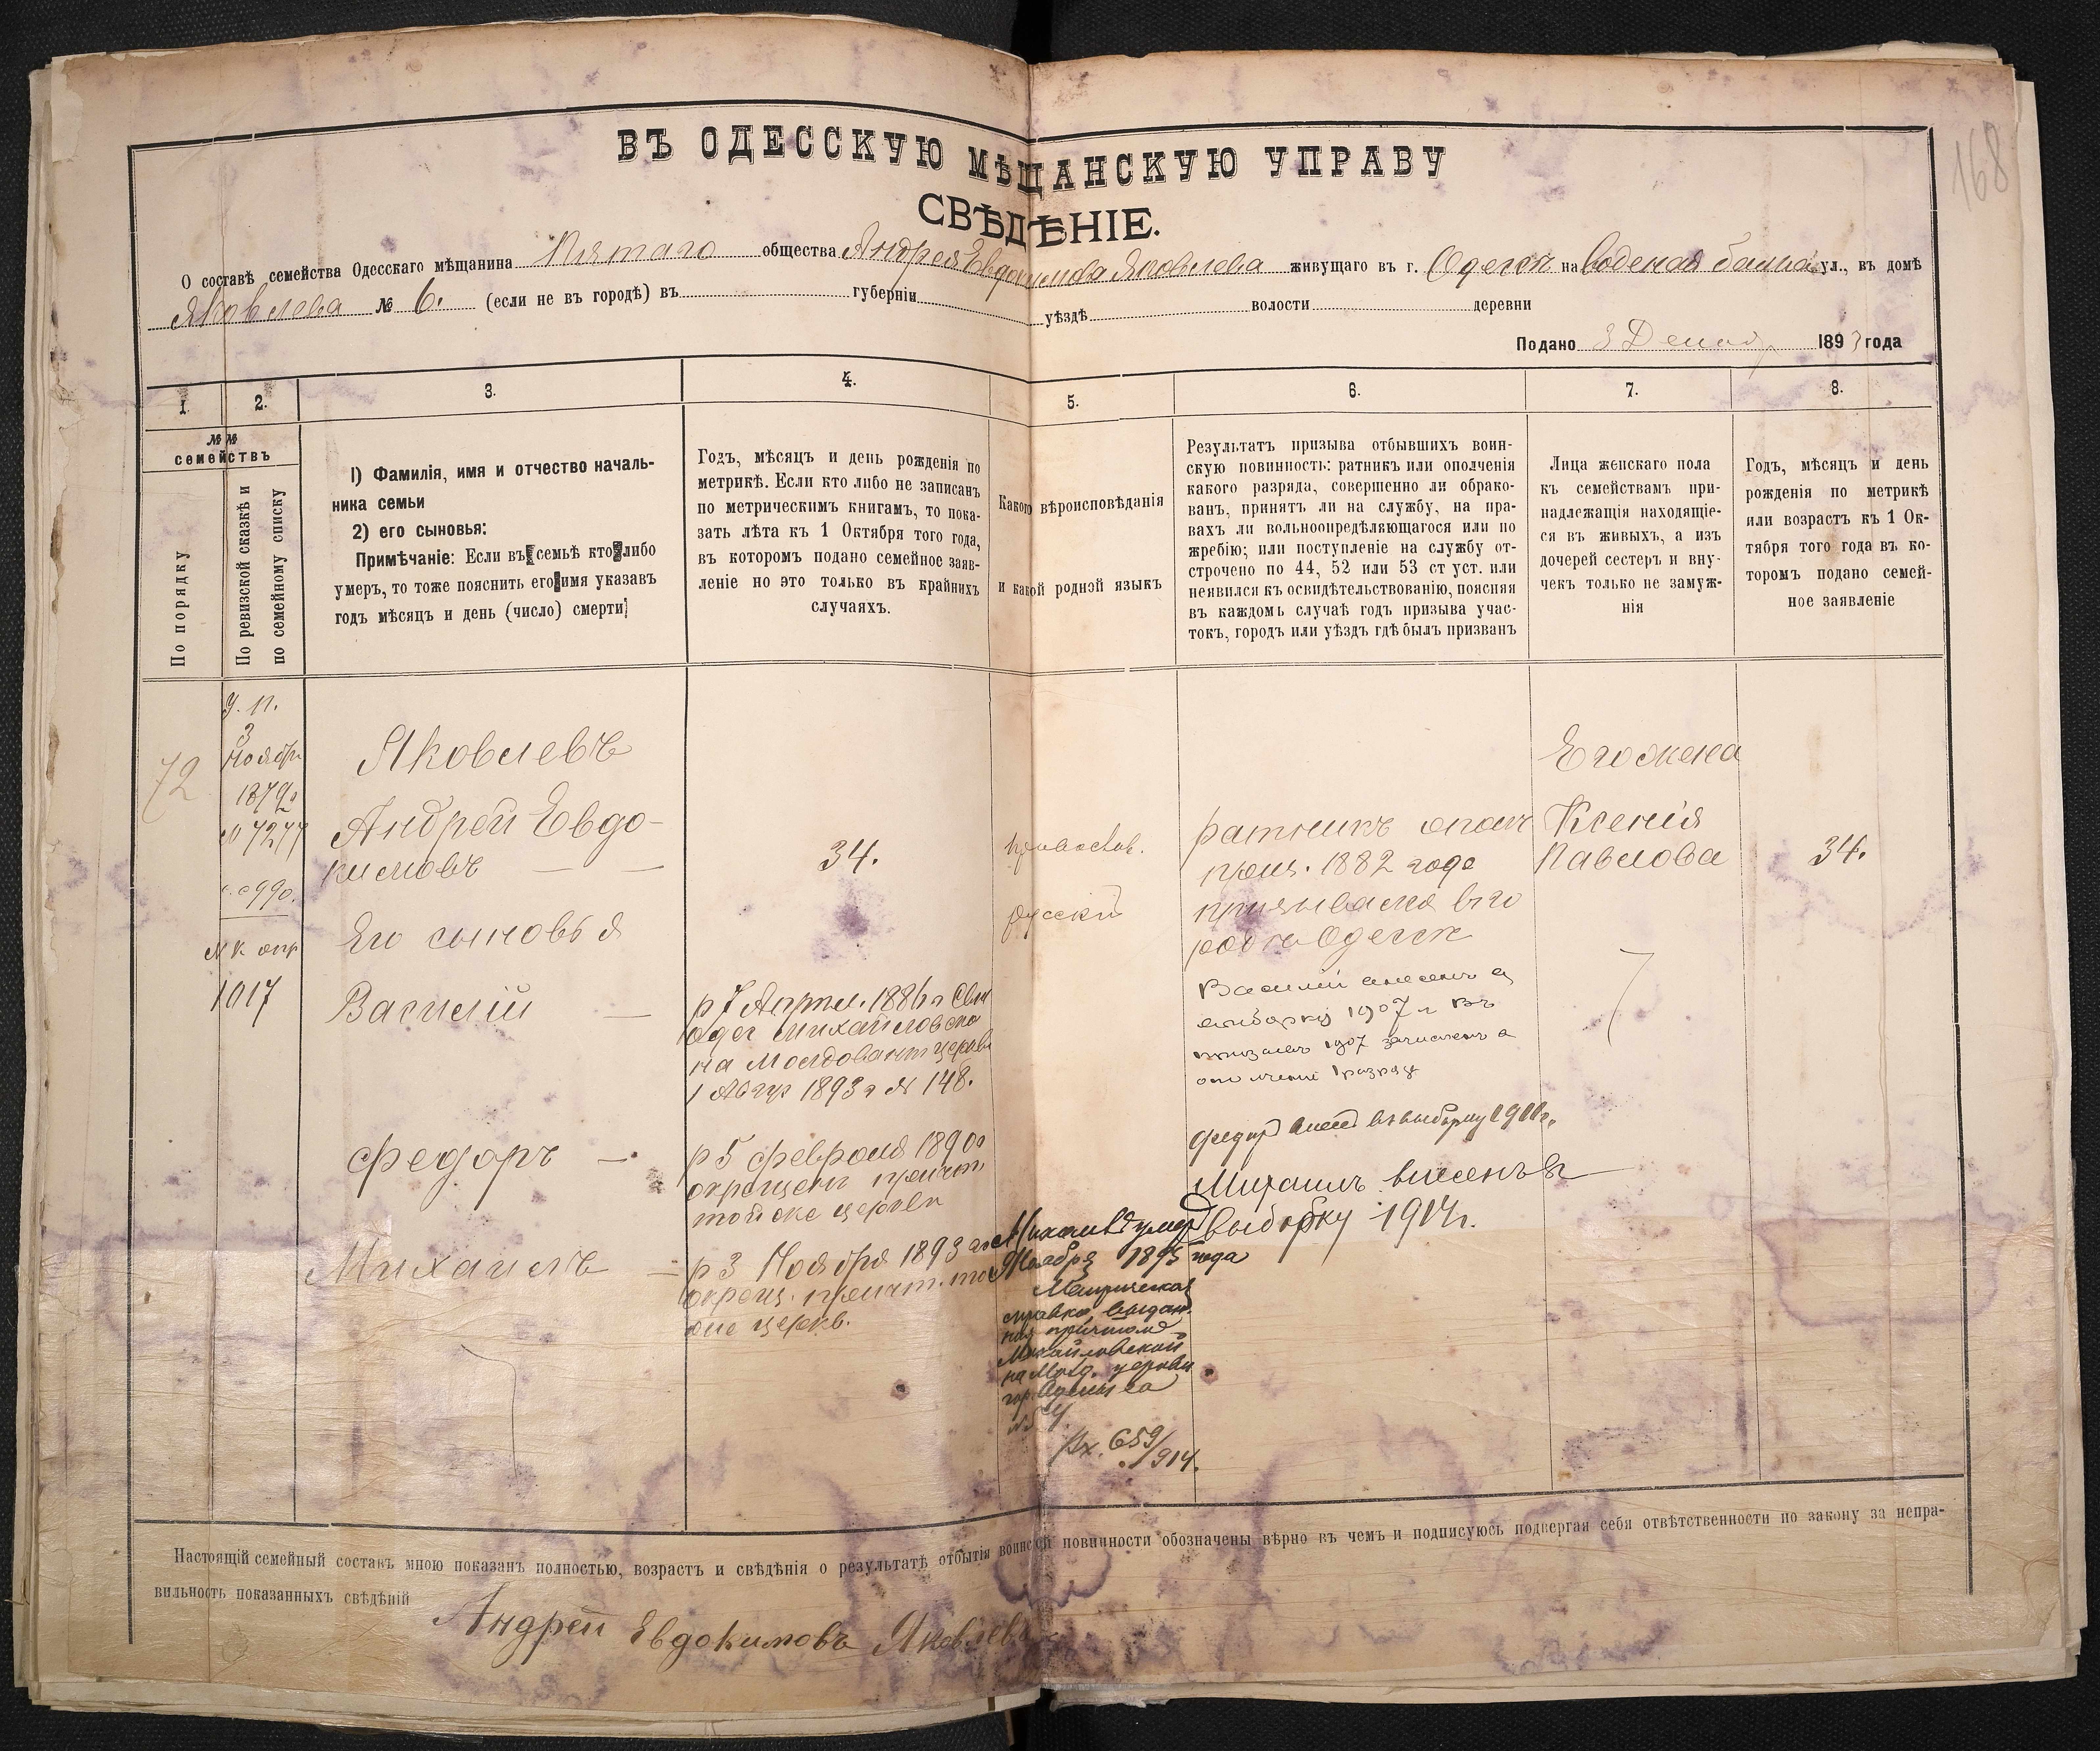 168
ВЪ ОДЕССКУЮ МѢЩАНСКУЮ УПРАВУ
СВѢДѢНІЕ.
О составѣ семейства Одесскаго мѣщанина Пятаго общества Андрея Евдокимова Яковлева живущаго въ г. Одессѣ на Водяная балка ул., въ домѣ
Яковлева № 6. (если не въ городѣ) въ губерніи уѣздѣ волости деревни
Подано 3 Декабр 1893 года
1. 2. 3. 4. 5. 6. 7. 8.
№№
семействъ
По порядку
По ревизской сказкѣ и
по семейному списку
1) Фамилія, имя и отчество началь-
ника семьи
2) его сыновья:
Примѣчаніе: Если въ семьѣ кто либо
умеръ, то тоже пояснить его имя указавъ
годъ мѣсяцъ и день (число) смерти
Годъ, мѣсяцъ и день рожденія по
метрикѣ. Если кто либо не записанъ
по метрическимъ книгамъ, то пока-
зать лѣта къ 1 Октября того года,
въ которомъ подано семейное заяв-
леніе но это только въ крайнихъ
случаяхъ.
Какого вѣроисповѣданія
и какой родной языкъ
Результатъ призыва отбывшихъ воин-
скую повинность: ратникъ или ополченія
какого разряда, совершенно ли обрако-
ванъ, принятъ ли на службу, на пра-
вахъ ли вольноопредѣляющагося или по
жребію; или поступленіе на службу от-
строчено по 44, 52 или 53 ст уст. или
неявился къ освидѣтельствованію, поясняя
въ каждомъ случаѣ годъ призыва учас-
токъ, городъ или уѣздъ гдѣ былъ призванъ
Лица женскаго пола
къ семействамъ при-
надлежащія находящіе-
ся въ живыхъ, а изъ
дочерей сестеръ и вну-
чекъ только не замуж-
нія
Годъ, мѣсяцъ и день
рожденія по метрикѣ
или возрастъ къ 1 Ок-
тября того года въ ко-
торомъ подано семей-
ное заявленіе
72
У. П.
3
Ноября
1879г
№ 7277
с. с 990.
1017
Яковлевъ
Андрей Евдо-
кимовъ
Его сыновья
Василій
Федоръ
Михаилъ
34.
р 7 Апрел. 1886 г Свид
Одес Михайловско
на Молдован церкви
1 Авгус 1893 г № 148.
р 5 февраля 1890г
окрещенъ причт
той же церкви
р 3 Ноября 1893 г
окрещ. причт. той
же церкв.
православ.
русскій
Михаилъ умер
Ноября 1895 года
Метрическая
справка выдан
ная причтомъ
Михайловской
на Молд. церкви
гор. Одессы за
№
Вх. 659/914.
ратникъ ополч
приз. 1882 года
призывался в го
родѣ Одессѣ
Василій внесенъ въ
выборку 1907 г Въ
призывъ 1907 зачисленъ в
ополченіе 1 разряд
Федор внесен въ выборку 1911г.
Михаилъ внесенъ въ
выборку 1914г.
Его жена
Ксенія
Павлова
34.
Настоящій семейный составъ мною показанъ полностью, возрастъ и свѣдѣнія о результатѣ отбытія воинской повинности обозначены вѣрно въ чемъ и подписуюсь подвергая себя отвѣтственности по закону за непра-
вильность показанныхъ свѣдѣній
Андрей Евдокимовъ Яковлевъ